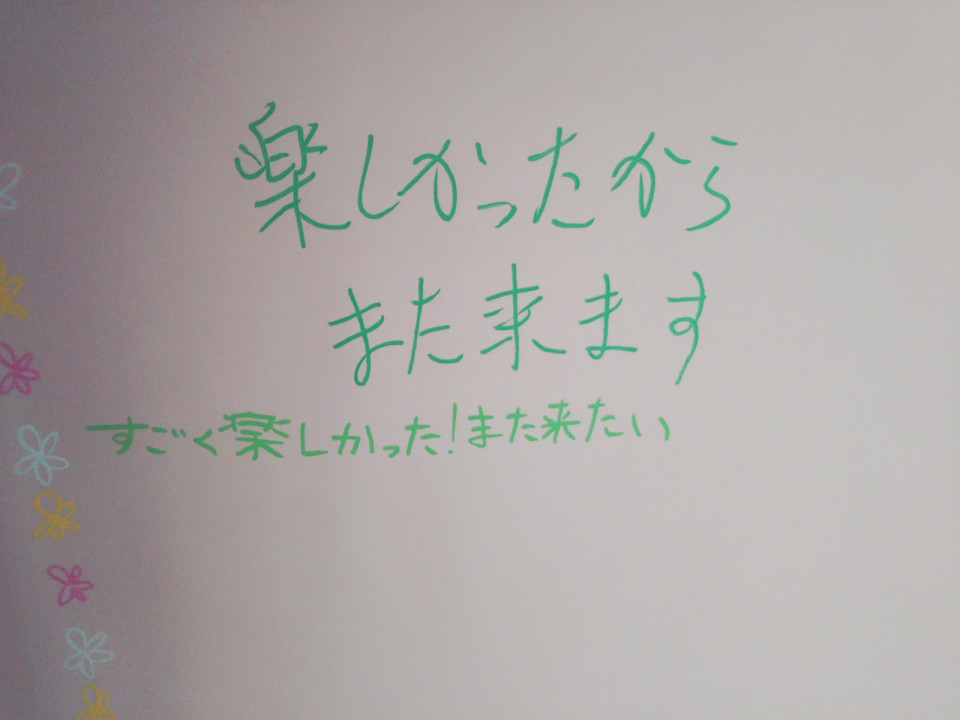 楽しかったから
また来ます
すごく楽しかった!また来たい